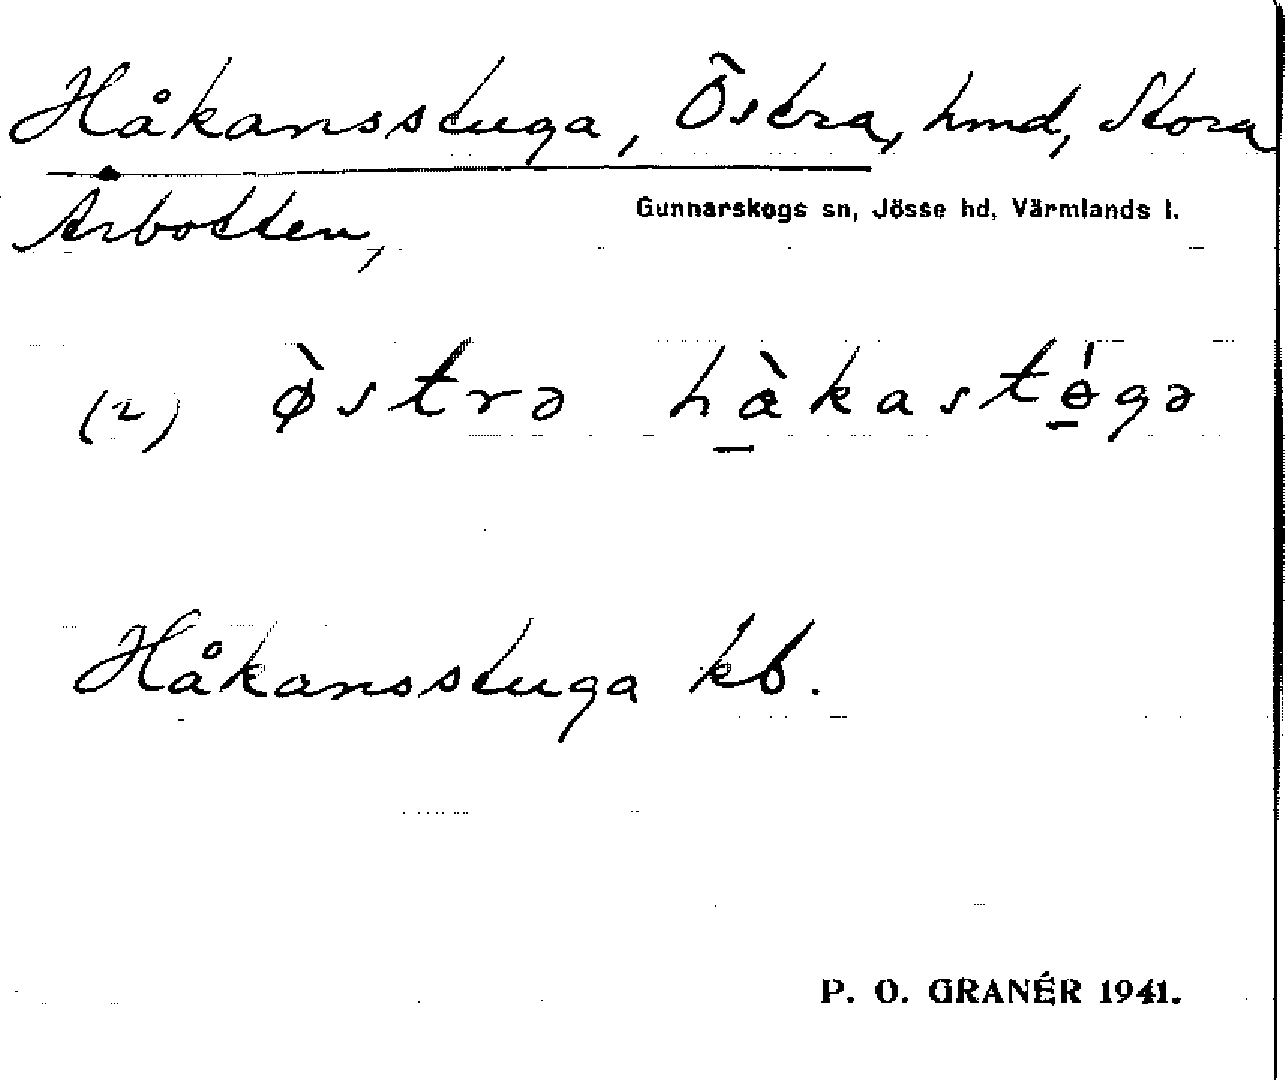 Håkansstuga, Östra, hmd, Stora
Arbotten,
Gunnarskogs sn, Jösse hd, Värmlands l.
(2) ø̀strə hà̱kastɵ̱́gə
Håkansstuga kb.
P. O. GRANÉR 1941.